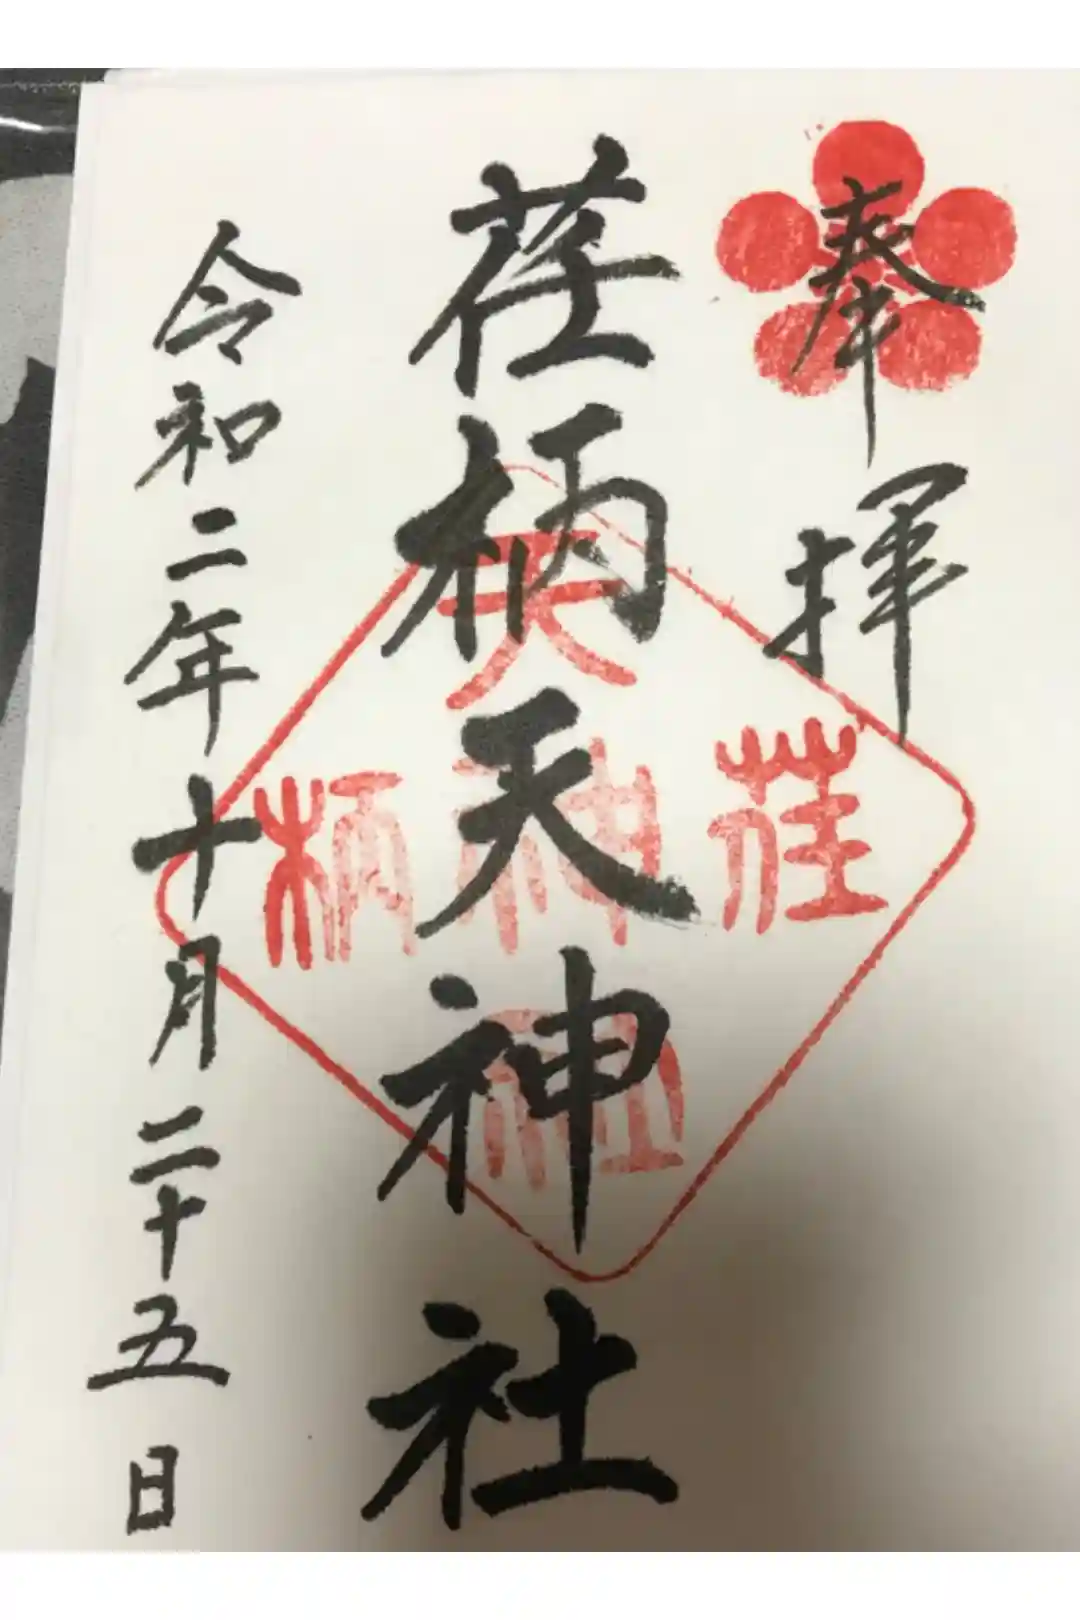 奉拝
荏柄天神社
令和二年十月二十五日
天
荏神柄
社